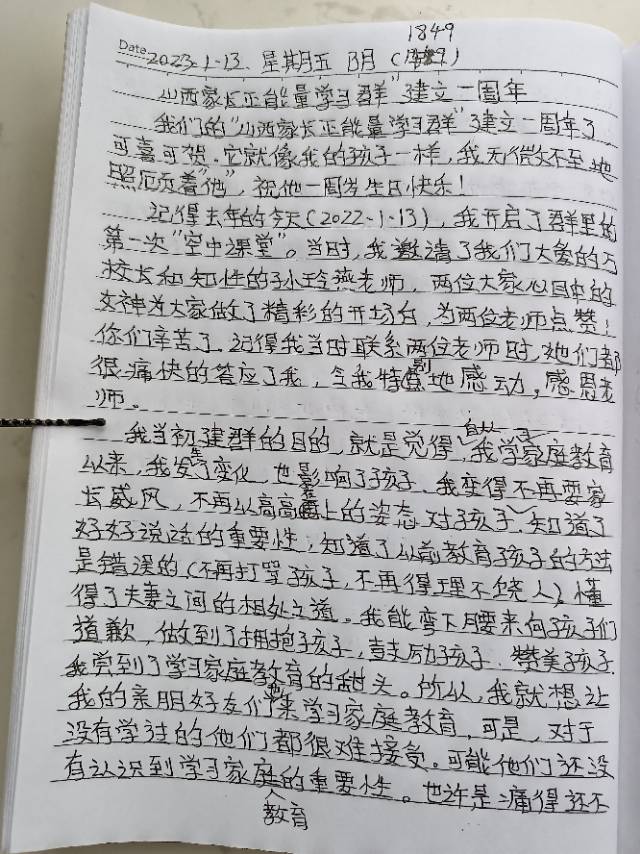 1849
Date 2023.1.13. 星期五 阴 (
山西家长正能量学习群"建立一周年
我们的"山西家长正能量学习群"建立一周年了
可喜可贺.它就像我的孩子一样,我无微不至地
照顾着"他",祝他一周岁生日快乐!
记得去年的今天(2022.1.13),我开启了群里的
第一次"空中课堂"。当时,我邀请了我们大爱的万
校长和知性的孙玲燕老师,两位大家心目中的
女神为大家做了精彩的开场白,为两位老师点赞!
你们辛苦了.记得我当时联系两位老师时,她们都
很痛快的答应了我,令我特别地感动,感恩老
师。
我当初建群的目的,就是觉得,自从我学家庭教育
以来,我发生了变化,也影响了孩子.我变得不再耍家
长威风,不再以高高在上的姿态对孩子,知道了
好好说话的重要性,知道了以前教育孩子的方法
是错误的(不再打骂孩子,不再得理不饶人),懂
得了夫妻之间的相处之道。我能弯下腰来向孩子们
道歉,做到了拥抱孩子,鼓励孩子.赞美孩子.
我尝到了学习家庭教育的甜头。所以,我就想让
我的亲朋好友们都来学习家庭教育,可是,对于
没有学过的他们都很难接受。可能他们还没
有认识到学习家庭教育的重要性。也许是痛得还不